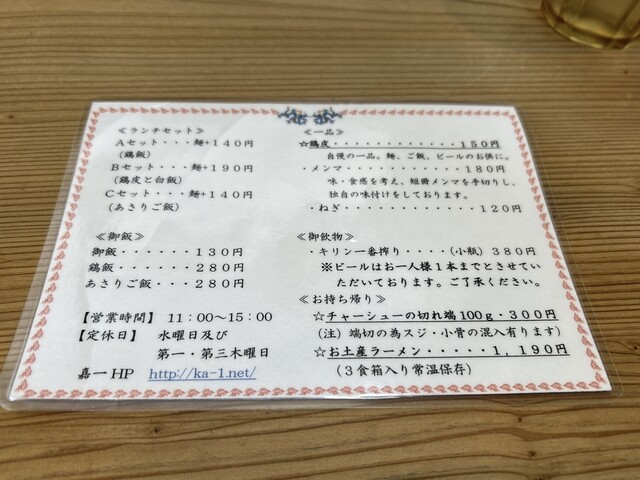 ≪ランチセット≫
Aセット・・・麺+140円
(鶏飯)
Bセット・・・麺+190円
(鶏皮と白飯)
Cセット・・・麺+140円
(あさりご飯)
≪御飯≫
御飯・・・・・・130円
鶏飯・・・・・・280円
あさりご飯・・・280円
【営業時間】 11:00~15:00
【定休日】 水曜日及び
第一・第三木曜日
嘉一HP http://ka-1.net/
≪一品≫
☆鶏皮・・・・・・・・・・・・150円
自慢の一品。麺、ご飯、ビールのお供に。
・メンマ・・・・・・・・・・・180円
味・食感を考え、短冊メンマを手切りし、
独自の味付けをしております。
・ねぎ・・・・・・・・・・・・120円
≪御飲物≫
・キリン一番搾り・・・・(小瓶) 380円
※ビールはお一人様1本までとさせてい
ただいております。ご了承ください。
≪お持ち帰り≫
☆チャーシューの切れ端100g・300円
(注) 端切の為スジ・小骨の混入有ります)
☆お土産ラーメン・・・・・1,190円
(3食箱入り常温保存)